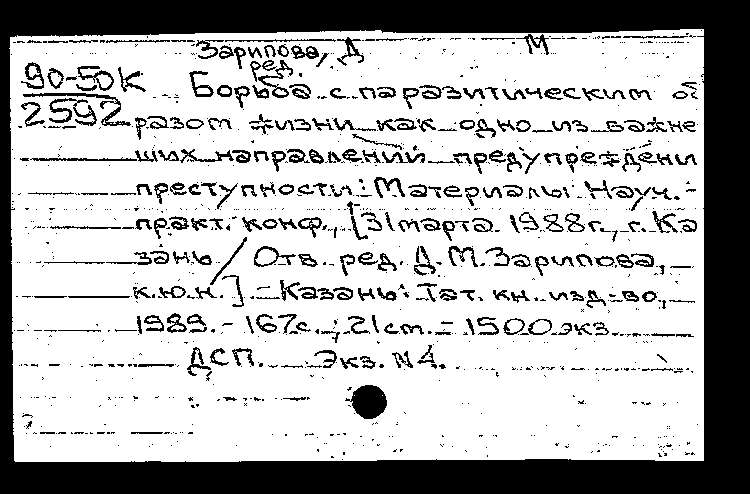 Зарипова, Д М
ред.
90-50К
2592
Борьба с паразитическим об
разом жизни как одно из важне
ших направлений предупреждени
преступности: Материалы Науч.-
практ. конф., [31 марта 1988г., г. Ка
зань / Отв. ред. Д.М.Зарипова,
к.ю.н.] - Казань: Тат. кн. изд-во,
1989. - 167с.; 21 cm. - 1500 экз.
ДСП. Экз. N4.